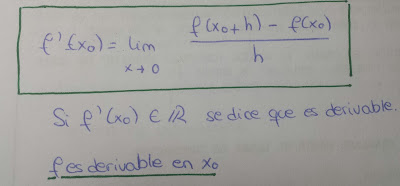 f'(x₀) = lim x→0 f(x₀+h) - f(x₀) / h
Si f'(x₀) ∈ ℝ se dice que es derivable.
f es derivable en x₀